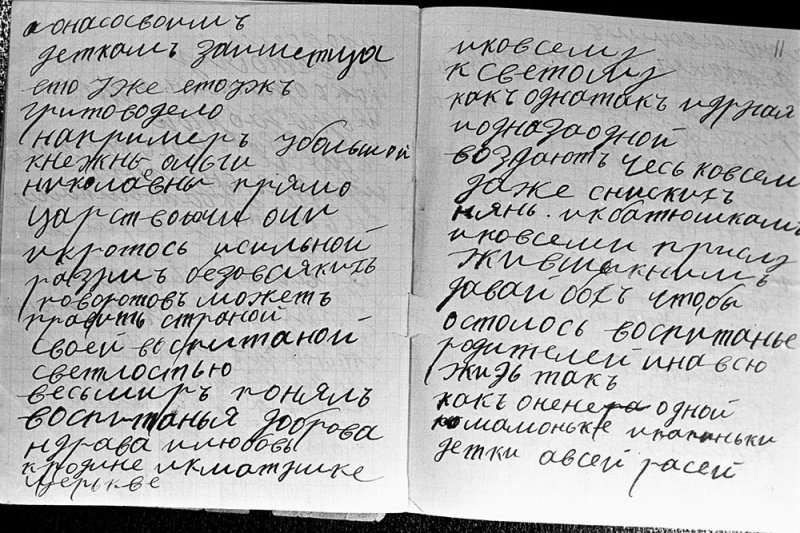 аонасосвоимъ
деткамъ займетца
ето уже етоужъ
гритоводело
например ъ убольшой
кнежны ольги
николавны прямо
царствоючи они
икротось исильной
разумъ бедовсякихъ
роворотовъ можетъ
править страной
своей воспитаной
светлостью
весьмиръ понялъ
воспитанья доброва
ндрава илюбовь
кродине икматушке
церькве
11
иковсему
ксветому
какъ однатакъ идруная
иодназаодной
воздаютъ чесь ковсем
даже снискихъ
нянь. икбатюшкамъ
иковсеми прислу
жившымкнимъ
давай бохъ чтобы
осталось воспитанье
родителей инавсю
жизь такъ
какъ онене одной
мамоньке ипапиньки
детки авсей расей